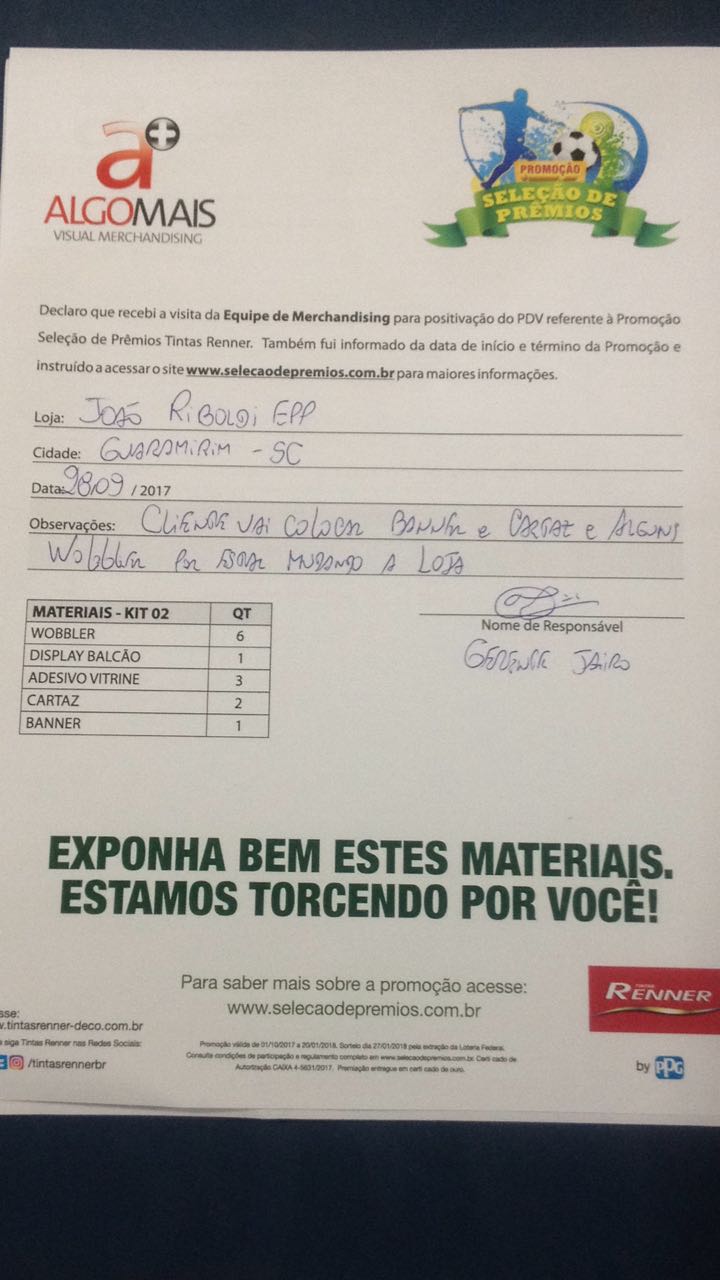 a+
ALGOMAIS
VISUAL MERCHANDISING
PROMOÇÃO
SELEÇÃO DE
PRÊMIOS
Declaro que recebi a visita da Equipe de Merchandising para positivação do PDV referente à Promoção
Seleção de Prêmios Tintas Renner. Também fui informado da data de início e término da Promoção e
instruído a acessar o site www.selecaodepremios.com.br para maiores informações.
Loja: JOÃO RIBOLDI EPP
Cidade: GUARAMIRIM - SC
Data: 28.09 / 2017
Observações: CLIENTE VAI COLOCAR BANNER e CARTAZ e ALGUNS
Wobbler POR ESTAR MUDANDO A LOJA
MATERIAIS - KIT 02 QT
WOBBLER 6
DISPLAY BALCÃO 1
ADESIVO VITRINE 3
CARTAZ 2
BANNER 1
Nome de Responsável
GERENTE JAIRO
EXPONHA BEM ESTES MATERIAIS.
ESTAMOS TORCENDO POR VOCÊ!
Para saber mais sobre a promoção acesse:
www.selecaodepremios.com.br
TINTAS
RENNER
sse:
w.tintasrenner-deco.com.br
a siga Tintas Renner nas Redes Sociais:
/tintasrennerbr
Promoção válida de 01/10/2017 a 20/01/2018. Sorteio dia 27/01/2018 pela extração da Loteria Federal.
Consulte condições de participação e regulamento completo em www.selecaodepremios.com.br. Certi cado de
Autorização CAIXA 4-5631/2017. Premiação entregue em certi cado de ouro.
by PPG